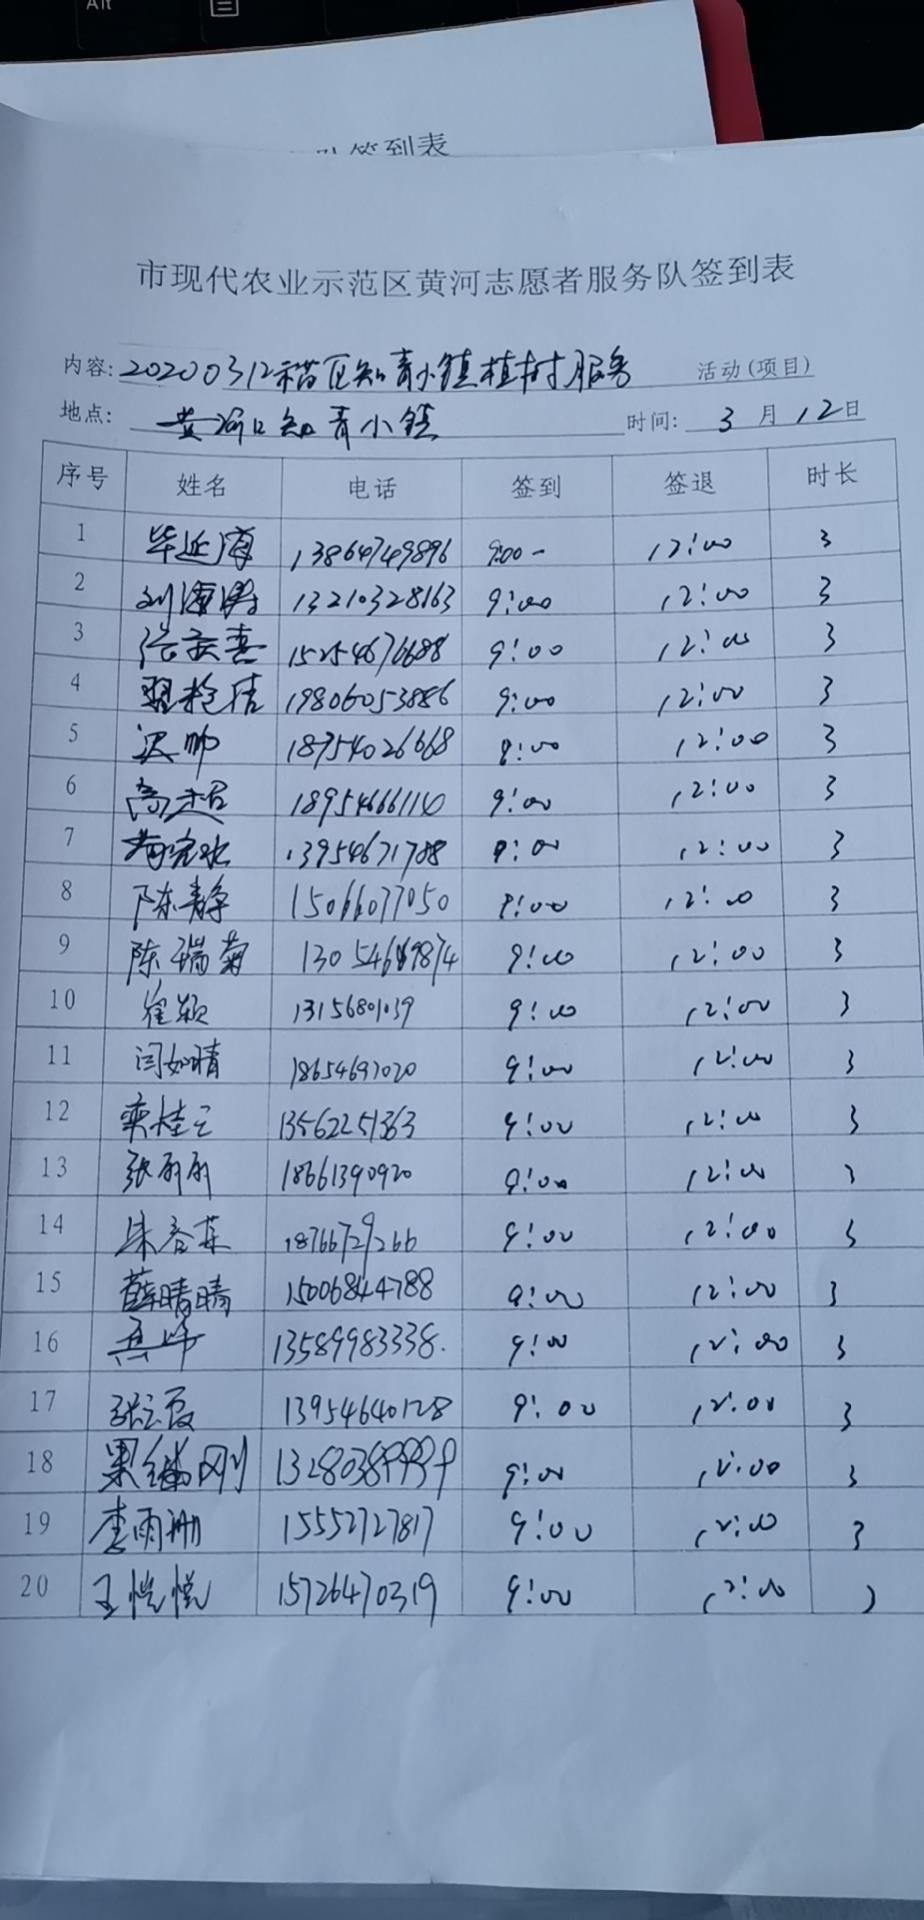 Alt
队签到表
市现代农业示范区黄河志愿者服务队签到表
内容: 20200312 示范区知青小镇植树服务 活动(项目)
地点: 黄河口知青小镇 时间: 3 月 12 日
序号 姓名 电话 签到 签退 时长
1 毕延海 13864749896 9:00- 12:00 3
2 刘海涛 13210328163 9:00 12:00 3
3 15254676688 9:00 12:00 3
4 19806053886 9:00 12:00 3
5 帅 18954026668 9:00 12:00 3
6 高超 9:00 12:00 3
7 13954671788 9:00 12:00 3
8 陈静 15066077050 9:00 12:00 3
9 陈瑞菊 9:00 12:00 3
10 崔颖 13156801039 9:00 12:00 3
11 闫如晴 18654697020 9:00 12:00 3
12 栾桂云 13562251363 9:00 12:00 3
13 张丽丽 18661390920 9:00 12:00 3
14 朱春葉 18766729266 9:00 12:00 3
15 薛晴晴 15006844788 9:00 12:00 3
16 13589983338. 9:00 12:00 3
17 张云霞 13954640128 9:00 12:00 3
18 刚 9:00 12:00 3
19 李雨珊 15552727817 9:00 12:00 3
20 王悦悦 15726470319 9:00 12:00 3